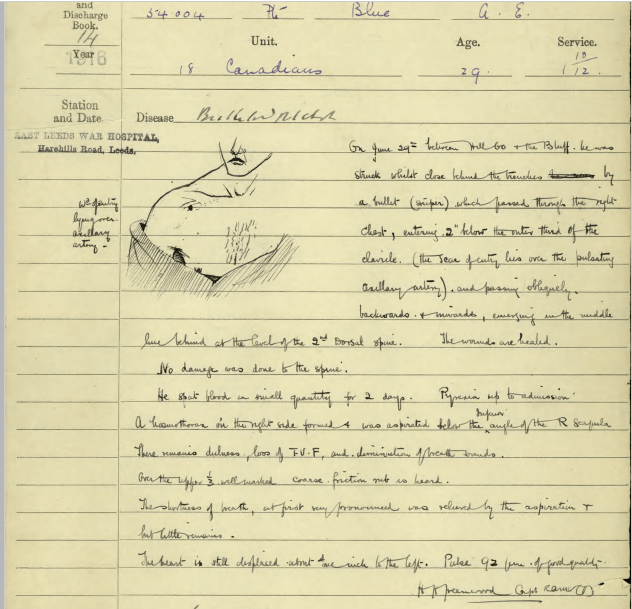 and
Discharge
Book.
14
Year
1916
54004 Pte Blue A. E.
Unit. Age. Service.
18 Canadians 29. 1 10/12.
Station
and Date. Disease
EAST LEEDS WAR HOSPITAL,
Harehills Road, Leeds.
Wd of entry
lying over
axillary
artery -
On June 29th between Hill 60 & the Bluff. he was
struck whilst close behind the trenches by
a bullet (sniper) which passed through the right
chest, entering 2" below the outer third of the
clavicle. (the scar of entry lies over the pulsating
axillary artery). and passing obliquely.
backwards. & inwards, emerging in the middle
line behind at the level of the 2nd Dorsal spine. The wounds are healed.
No damage was done to the spine.
He spat blood in small quantity for 2 days. Pyrexia up to admission
A haemothorax on the right side formed & was aspirated below the inferior angle of the R Scapula
There remains dulness, loss of T.V.F, and diminution of breath sounds.
Over the upper 1/2 well marked coarse friction rub is heard.
The shortness of breath, at first very pronounced was relieved by the aspiration &
but little remains.
The heart is still displaced about one inch to the left. Pulse 92 of good quality.
Greenwood Capt RAMC (T)